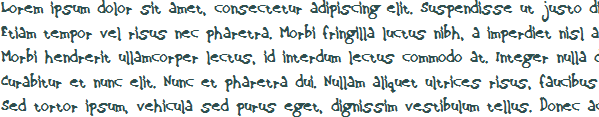 Lorem ipsum dolor sit amet, consectetur adipiscing elit. Suspendisse ut justo di
Etiam tempor vel risus nec pharetra. Morbi fringilla luctus nibh, a imperdiet nisl a
Morbi hendrerit ullamcorper lectus, id interdum lectus commodo at. Integer nulla c
Curabitur et nunc elit. Nunc et pharetra dui. Nullam aliquet ultrices risus, faucibus
Sed tortor ipsum, vehicula sed purus eget, dignissim vestibulum tellus. Donec ac